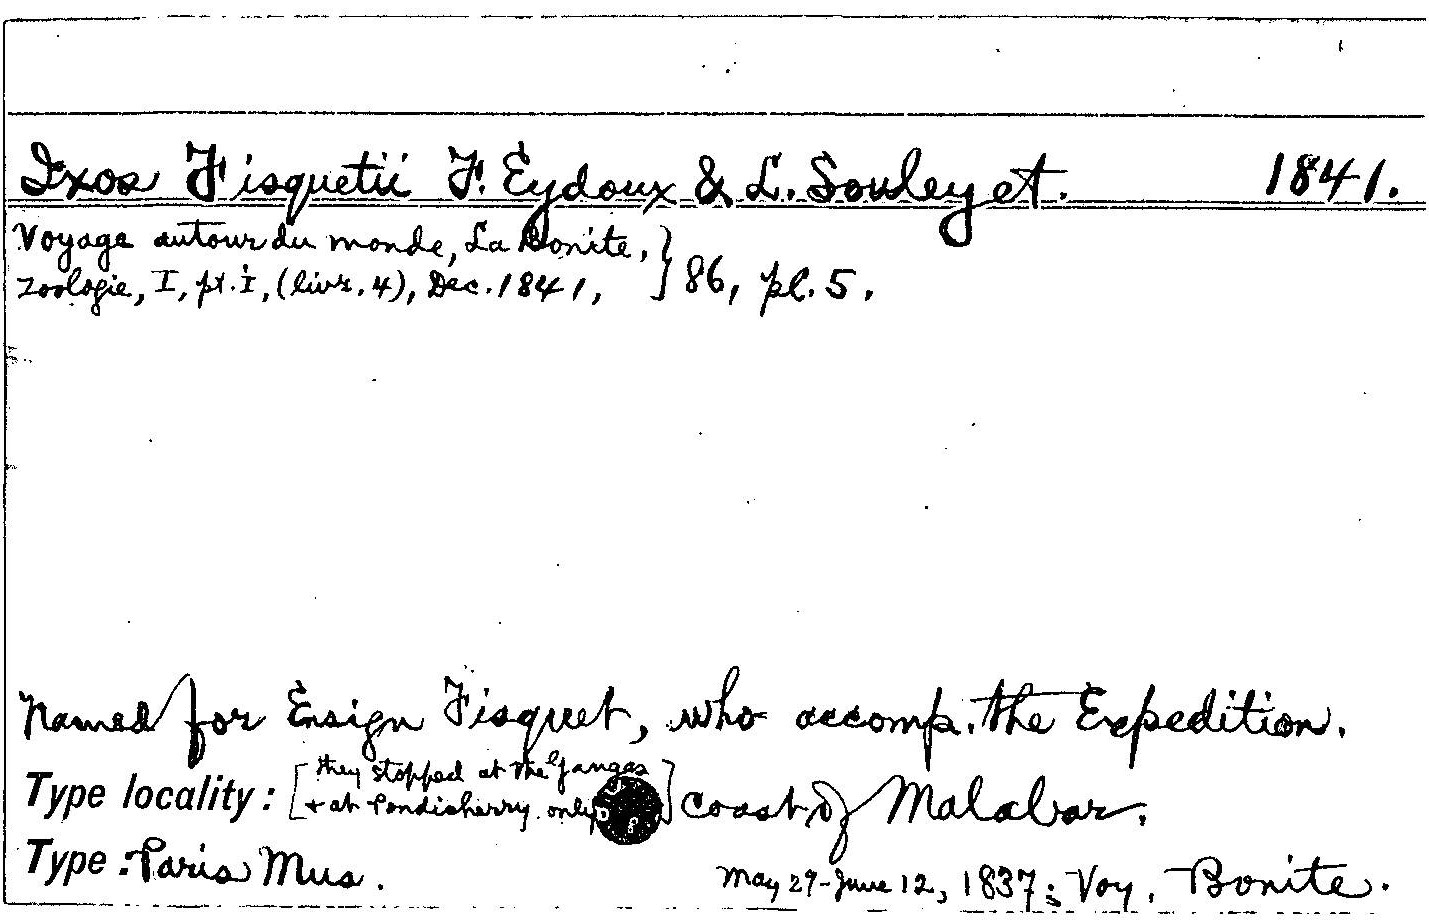 Ixos Fisquetii F. Eydoux & L. Souleyet. 1841.
Voyage autour du monde, La Bonite, } 86, pl. 5.
Zoologie, I, pt. 1, (livr. 4), Dec. 1841,
Named for Ensign Fisquet, who accomp. the Expedition.
Type locality: [they stopped at the Ganges
+ at Pondicherry only] coast of Malabar.
Type: Paris Mus.
May 29-June 12, 1837; Voy. Bonite.